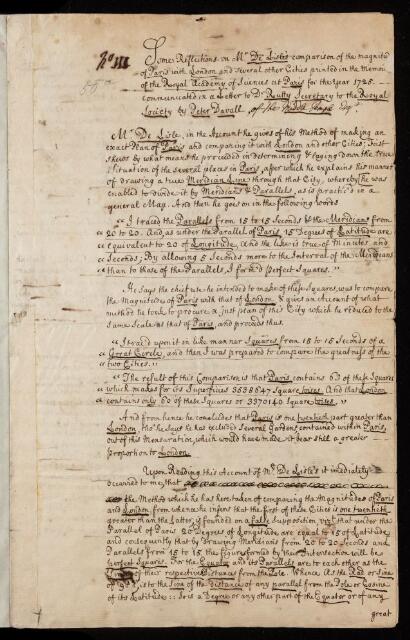 No III
Some Reflections on Mr. De Lisle's comparison of the magnitude
of Paris with London and several other Cities printed in the Memoirs
of the Royal Academy of Sciences at Paris for the Year 1725.
communicated in a Letter to Dr. Rutty Secretary to the Royal
Society by Peter Davall, of the Middle Temple Esqr.
Mr. De Lisle, in the Account he gives of his Method of making an
exact Plan of Paris and comparing it with London and other Cities; First
shews by what means he proceeded in determining & laying down the true
situation of the several places in Paris, after which he explains his manner
of drawing a true Meridian Line through that City, whereby he was
enabled to divide it by Meridians & Parallels, as is practis'd in a
general Map. And then he goes on in the following words
" I traced the Parallels from 15 to 15 Seconds & the Meridians from
" 20 to 20. And as under the Parallel of Paris 15 Degrees of Latitude are
" equivalent to 20 of Longitude, and the like is true of Minutes and
" Seconds; By allowing 5 Seconds more to the Interval of the Meridians
" than to those of the Parallels, I form'd perfect Squares. "
He says the chief use he intended to make of these Squares, was to compare
the Magnitude of Paris with that of London & gives an Account of what
method he took to procure a just plan of this City which he reduced to the
same Scale as that of Paris, and proceeds thus.
" I traced upon it in like manner Squares from 15 to 15 Seconds of a
" Great Circle, and then I was prepared to compare the greatness of the
" two Cities. "
" The result of this Comparison is that Paris contains 63 of these Squares
" which makes for its Superficies 3538647 Square toises. And that London
" contains only 60 of these Squares or 3370140 Square toises. "
And from hence he concludes that Paris is one twentieth part greater than
London. Tho' he says he has excluded several Gardens contained within Paris,
out of this Mensuration, which would have made it bear still a greater
proportion to London.
Upon Reading this Account of Mr. De Lisle's it immediately
occurred to me, that
the Method which he has here taken of comparing the Magnitudes of Paris
and London from whence he infers that the first of these Cities is one twentieth
greater than the Latter, is founded on a false Supposition, vizt. that under the
Parallel of Paris 20 Degrees of Longitude are equal to 15 of Latitude
and consequently that by drawing Meridians from 20 to 20 Seconds and
Parallels from 15 to 15 the figures formed by their Intersection will be
perfect Squares. For the Equator and its Parallels are to each other as the
of their respective distances from the Pole. Whence As the Rad: or Sine
of 90° is to the Sine of the distance of any parallel from the Pole or Cosine
of its Latitude :: So is a Degree or any other part of the Equator or of any
great